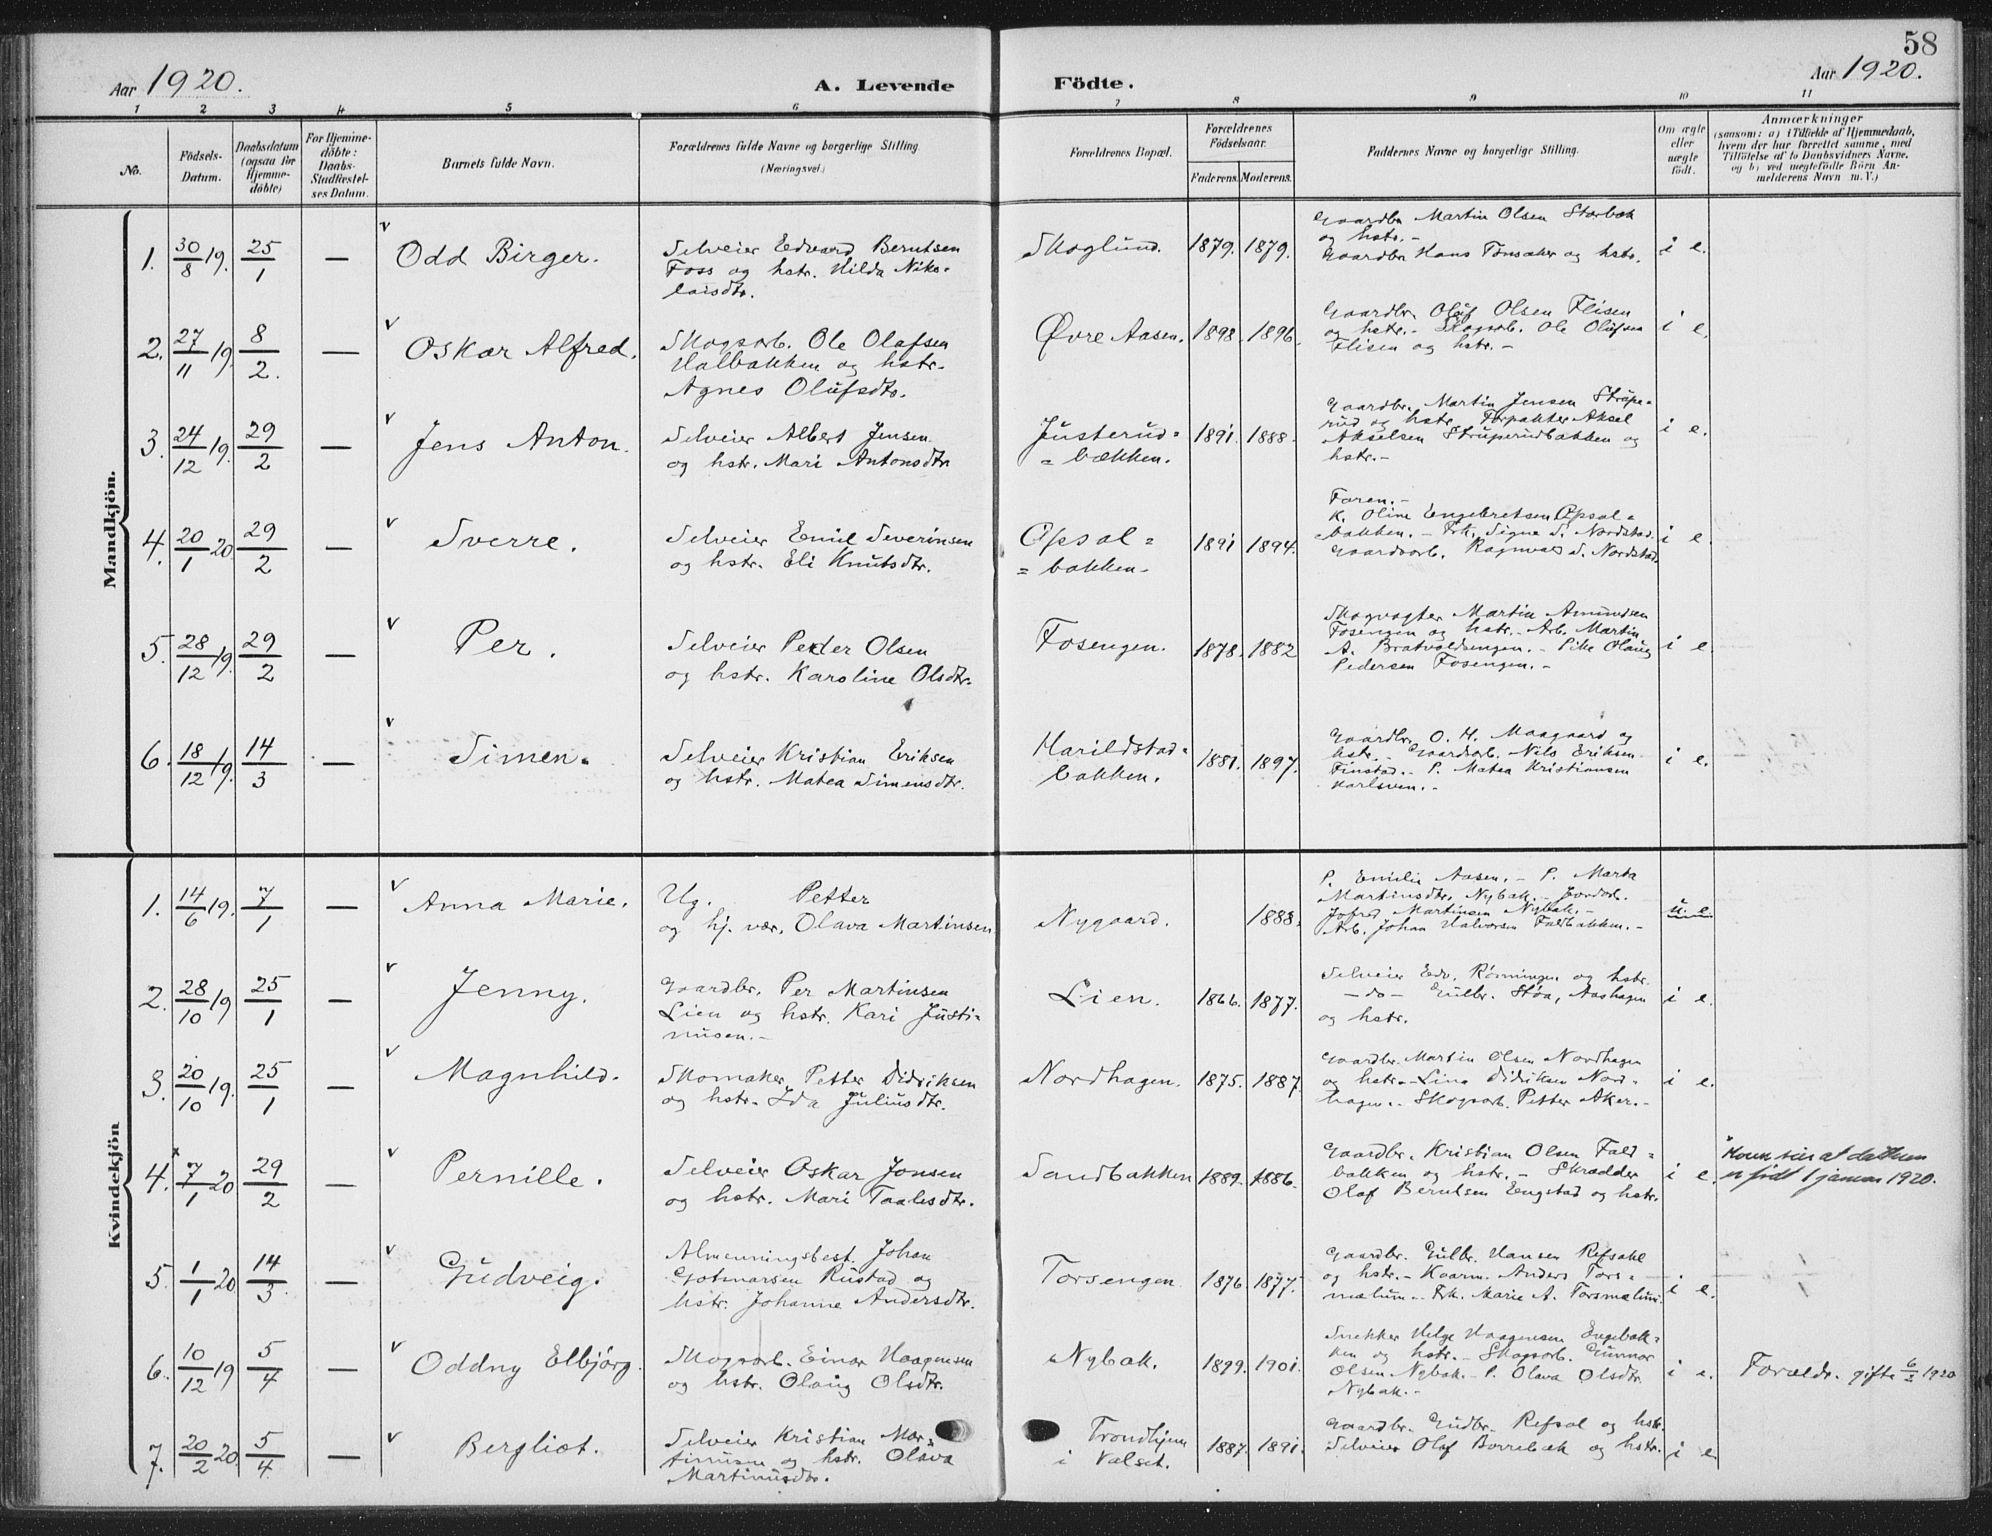 58
Aar 1920.
A. Levende Födte.
Aar 1920.
1 2 3 4 5 6 7 8 9 10 11
No.
Födsels-
Datum.
Daabsdatum
(ogsaa for
Hjemme-
döbte)
For Hjemme-
döbte:
Daabs-
Stadfæstel-
ses Datum.
Barnets fulde Navn.
Forældrenes fulde Navne og borgerlige Stilling
(Næringsvei.)
Forældrenes Bopæl.
Forældrenes
Födselsaar.
Faderens. Moderens.
Faddernes Navne og borgerlige Stilling.
Om ægte
eller
uægte
födt.
Anmærkninger
(saasom: a) i Tilfælde af Hjemmedaab,
hvem der har forrettet samme, med
Tilföielse af to Daabsvidners Navne.
og b) ved uægtefödte Börn An-
melderens Navn m. V.)
Mandkjön.
1. 30/8 19. 25/1 — Odd Birger.
Selveier Edvard Berntsen
Foss og hstr. Hilda Niko-
laisdtr.
Skoglund. 1879. 1879.
Gaardbr Martin Olsen Storbæk
og hstr.-
Gaardbr Hans Tønsaker og hstr.
i e.
2. 27/11 19. 8/2. — Oskar Alfred.
Skogsarb. Ole Olafsen
Halbakken og hstr.
Agnes Olufsdtr.
Øvre Aasen. 1898. 1896.
Gaardbr. Oluf Olsen Flisen
og hstr.- Skogsarb. Ole Olufsen
Flisen og hstr.-
i e.
3. 24/12 19. 29/2 — Jens Anton.
Selveier Albert Jensen
og hstr. Mari Antonsdtr
Justerud=
=bækken.
1891. 1888.
Gaardbr. Martin Jensen Strupe=
rud og hstr Forpakter Aksel
Akselsen Struperudbakken og
hstr.-
i e.
4. 20/1 20 29/2 — Sverre.
Selveier Emil Severinsen
og hstr. Eli Knutsdtr.
Opsal=
=bakken-
1891 1894.
Faren.-
K. Oline Engebretsen Opsal=
bakken.- Frk. Signe S. Nordstad.
Gaardsarb. Ragnvald S. Nordstad.
i e.
5. 28/12 19. 29/2 — Per.
Selveier Peder Olsen
og hstr. Karoline Olsdtr.
Fosengen. 1878. 1882
Skogvogter Martin Amundsen
Fosengen og hstr.- Arb. Martin
A. Bratvoldsengen.- Pike Olaug
Pedersen Fosengen.-
i e.
6. 18/12 19. 14/3 — Simen.
Selveier Kristian Eriksen
og hstr. Matea Simensdtr.
Harildstad=
bakken.
1881. 1897.
Gaardbr. O. H. Maagaard og
hstr. Gaardsarb. Nils Eriksen
Finstad.- P. Matea Kristiansen
Karlsven.-
i e.
Kvindekjön
1. 14/6 19. 7/1 — Anna Marie.
Ug. Petter
og hj. vær. Olava Martinsen
Nygaard. 1888.
P. Emilie Aasen.- P. Marta
Martinsdtr. Nybak.- Jordarb.
Jofred Martinsen Nybak.-
Arb. Johan Halvorsen Faldbakken.-
u. e.
2. 28/10 19 25/1 — Jenny.
Gaardbr. Per Martinsen
Lien og hstr. Kari Justi-
nusen.-
Lien. 1866. 1877.
Selveier Edv. Rønningen og hstr
—do— Gulbr. Støa, Aashagen
og hstr.
i e.
3. 20/10 19. 25/1 — Magnhild.
Skomaker Petter Didriksen
og hstr. Ida Juliusdtr.
Nordhagen. 1875. 1887
Gaardbr. Martin Olsen Nordhagen
og hstr.- Lina Didriksen Nord=
hagen.- Skogsarb. Petter Aker.-
i e.
4. 7/1 20 29/2 — Pernille.
Selveier Oskar Jonsen
og hstr. Mari Taalesdtr.
Sandbakken 1889. 1886.
Gaardbr. Kristian Olsen Fald=
bakken og hstr.- Skrædder
Olaf Berntsen Engstad og hstr.
i e.
at datteren
er født 1 januar 1920.
5. 1/1 20 14/3. — Gudveig.
Almenningsbest. Johan
Gotmarsen Rustad og
hstr. Johanne Andersdtr.
Torsengen 1876 1877.
Gaardbr. Gulbr. Hansen Refsahl
og hstr.- Kaarm. Anders Tors=
mælum.- Frk. Marie A. Torsmælum.
i e.
6. 10/12 19 5/4 — Oddny Elbjörg
Skogsarb. Einar Haagensen
og hstr. Olaug Olsdtr.
Nybak. 1899. 1901.
Snekker Helge Haagensen Engebak=
ken og hstr.- Skogsarb. Gunnar
Olsen Nybak.- P. Olava Olsdtr.
Nybak.-
i e.
Forældr. gifte 6/2 1920
7. 20/2 20. 5/4. — Bergliot.
Selveier Kristian Mar-
tinusen og hstr. Olava
Martinusdtr.
Trondhjem
i Valset.
1887. 1891.
Gaardbr. Gudbr. Refsal og hstr.
Selveier Olaf Borrebæk og hstr.
i e